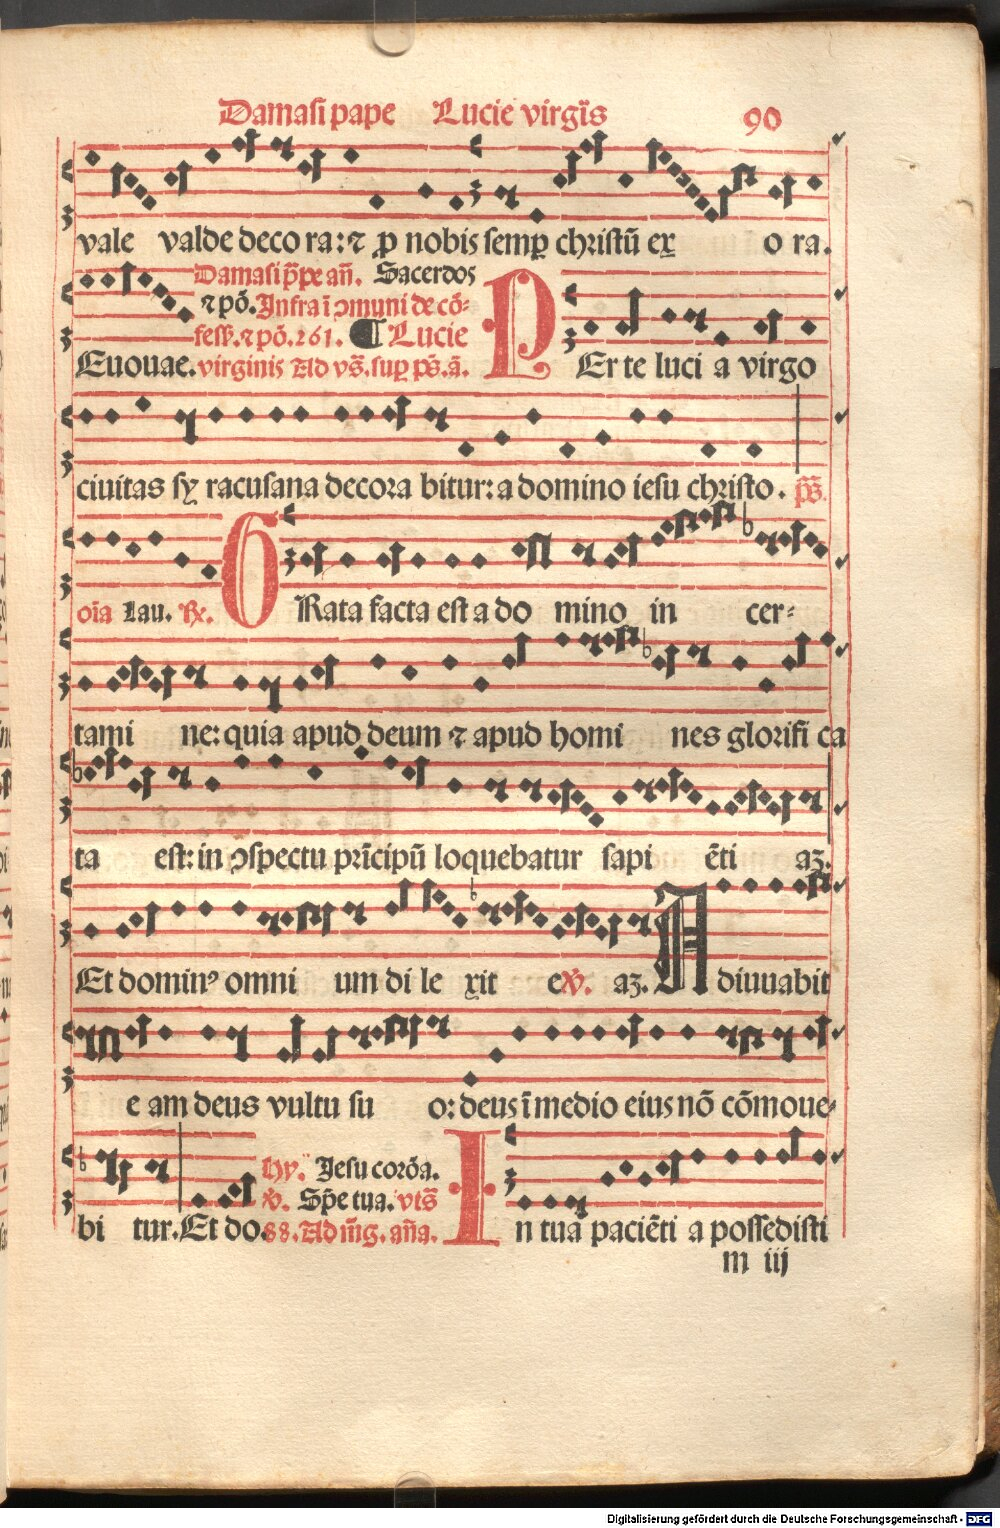 Damasi pape Lucie virgīs 90
vale valde deco ra: ⁊ ꝓ nobis semꝑ christū ex o ra.
Damasi p̄pe an̄. Sacerdos
⁊ pō. Infra ī ↄmuni de cō-
fess̄. ⁊ pō. 261. ¶ Lucie
Euouae. virginis Ad vs̄. suꝑ ps̄. ā. PEr te luci a virgo
ciuitas sy racusana decora bitur: a domino iesu christo. ps̄.
oīa Lau. ℞. GRata facta est a do mino in cer-
tami ne: quia apud deum ⁊ apud homi nes glorifi ca
ta est: in ↄspectu prīcipū loquebatur sapi ēti aꝫ.
Et dominꝰ omni um di le xit e ℣. aꝫ. Adiuuabit
e am deus vultu su o: deus ī medio eius nō cōmoue-
bi tur. Et do.
hy. Jesu corōa.
℣. Sp̄e tua. vts̄
88. Ad m̄g. an̄a. In tua paciēti a possedisti
m iij
Digitalisierung gefördert durch die Deutsche Forschungsgemeinschaft - DFG